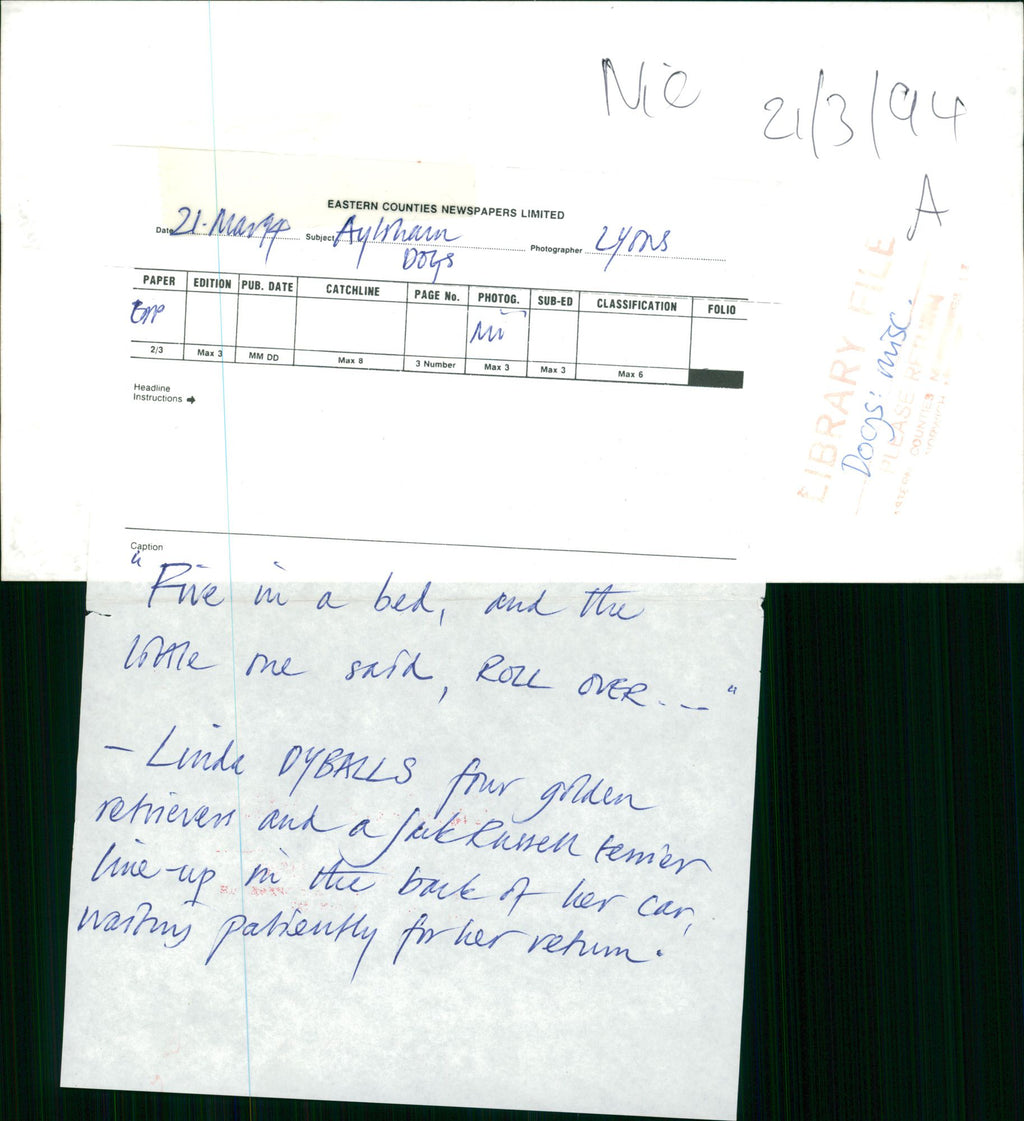 Nic
21/3/94
A
EASTERN COUNTIES NEWSPAPERS LIMITED
Date 21. Mar 94 Subject Aylsham Photographer Lyons
Dogs
PAPER EDITION PUB. DATE CATCHLINE PAGE No. PHOTOG. SUB-ED CLASSIFICATION FOLIO
EDP
2/3 Max 3 MM DD Max 8 3 Number Max 3 Max 3 Max 6
Headline
Instructions
LIBRARY FILE
Dogs: misc.
PLEASE RETURN
EASTERN COUNTIES
Caption
"Five in a bed, and the
little one said, ROLL OVER..."
— Linda DYBALLS four golden
retrievers and a Jack Russell terrier
line-up in the back of her car,
waiting patiently for her return.